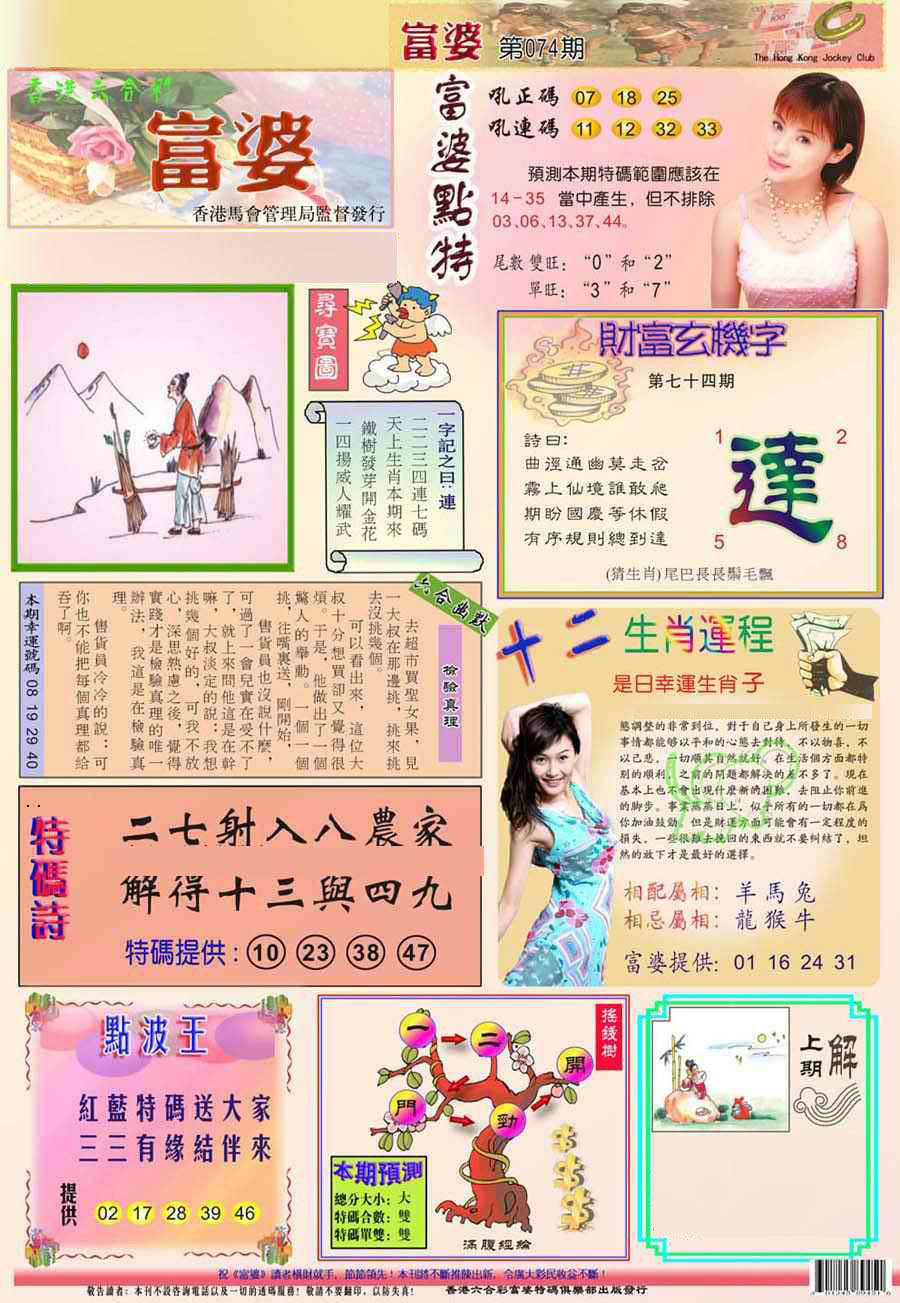 富婆 第074期
The Hong Kong Jockey Club
香港六合彩
富婆
香港馬會管理局監督發行
富婆點特
吼正碼 07 18 25
吼連碼 11 12 32 33
預測本期特碼範圍應該在
14-35 當中產生，但不排除
03.06.13.37.44。
尾數雙旺：“0”和“2”
單旺：“3”和“7”
尋寶圖
一字記之曰：連
二二三四連七碼
天上生肖本期來
鐵樹發芽開金花
一四揚威人耀武
財富玄機字
第七十四期
詩曰：
曲徑通幽莫走岔
霧上仙境誰敢爬
期盼國慶等休假
有序規則總到達
1 2
達
5 8
(猜生肖)尾巴長長鬃毛飄
六合幽默
檢驗真理
去超市買聖女果，見
一大叔在那邊挑，挑來挑
去沒挑幾個。
可以看出來，這位大
叔十分想買卻又覺得很
煩。于是，他做出了一個
驚人的舉動。一個一個
挑，往嘴裏送，剛開始，
售貨員也沒說什麼，
可過了一會兒實在受不了
了，就上來問他這是在幹
嘛，大叔淡定的說：我想
挑幾個好的，可我不放
心，深思熟慮之後，覺得
實踐才是檢驗真理的唯一
辦法，我這是在檢驗真
理。
售貨員冷冷的說：可
你也不能把每個真理都給
吞了啊。
本期幸運號碼 08 19 29 40
十二生肖運程
是日幸運生肖子
態調整的非常到位，對于自己身上所發生的一切
事情都能够以平和的心態去對待，不以物喜，不
以己悲，一切順其自然就好。在生活個方面都特
別的順利，之前的問題都解決的差不多了。現在
基本上也不會出現什麼新的困難，去阻止你前進
的脚步。事業蒸蒸日上，似乎所有的一切都在爲
你加油鼓勁。但是財運方面可能會有一定程度的
損失，一些很難去挽回的東西就不要糾結了，坦
然的放下才是最好的選擇。
相配屬相：羊馬兔
相忌屬相：龍猴牛
富婆提供：01 16 24 31
特碼詩
二七射入八農家
解得十三與四九
特碼提供：10 23 38 47
點波王
紅藍特碼送大家
三三有緣結伴來
提供 02 17 28 39 46
搖錢樹
一 二 開
門 勁
本期預測
總分大小：大
特碼合數：雙
特碼單雙：雙
滿腹經綸
上期解
祝《富婆》讀者橫財就手，節節領先！本刊將不斷推陳出新，令廣大彩民收益不斷！
敬告讀者：本刊不設咨詢電話以及一切的透碼服務！敬請不要翻印，以防失真！ 香港六合彩富婆特碼俱樂部出版發行